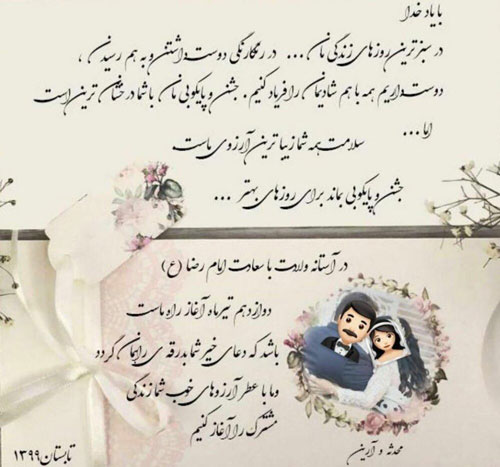 با یاد خدا
در سبزترین روزهای زندگی مان ... در رنگارنگی دوست داشتن و به هم رسیدن ،
دوست داریم همه با هم شادیمان را فریاد کنیم . جشن و پایکوبی مان با شما درخشان ترین است
اما ...
سلامت همه شما زیبا ترین آرزوی ماست
جشن و پایکوبی بماند برای روزهای بهتر ...
در آستانه ولادت با سعادت امام رضا (ع)
دوازدهم تیرماه آغاز راه ماست
باشد که دعای خیر شما بدرقه ی راهمان گردد
و ما با عطر آرزوهای خوب شما زندگی
مشترک را آغاز کنیم
محدثه و آرین
تابستان ۱۳۹۹